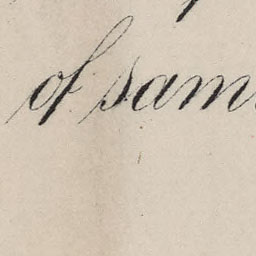 of sam